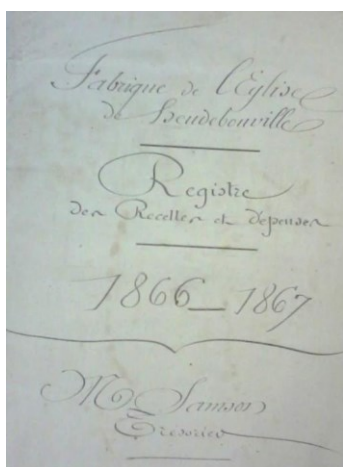 Fabrique de l'Eglise
de Heudebouville
Registre
des Recettes et dépenses
1866_1867
Mr Samson
Trésorier